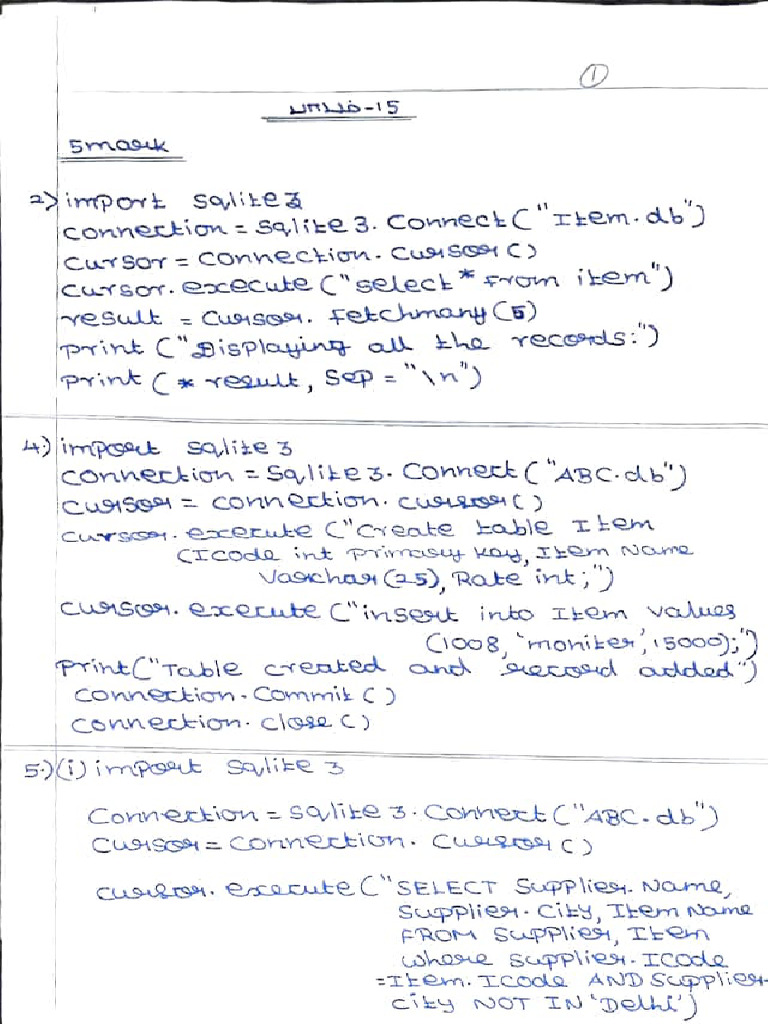 1
பாடம்-15
5 mark
2) import sqlite3
connection = sqlite3. connect("Item.db")
cursor = connection. cursor()
cursor. execute ("select * from item")
result = cursor. fetchmany (5)
print ("Displaying all the records:")
print (* result, sep = "\n")
4.) import sqlite 3
connection = Sqlite 3. Connect ("ABC.db")
cursor = connection. cursor()
cursor. execute ("create table Item
(ICode int primary key, Item Name
Varchar (25), Rate int;")
cursor. execute ("insert into Item values
(1008, 'moniter', 15000);")
Print("Table created and record added")
connection. Commit ()
connection. close ()
5.) (i) import sqlite 3
Connection = sqlite 3. Connect ("ABC.db")
Cursor = connection. cursor ()
cursor. execute ("SELECT Supplier. Name,
Supplier. City, Item Name
FROM Supplier, Item
where supplier. ICode
= Item. ICode AND Supplier.
City NOT IN 'Delhi')